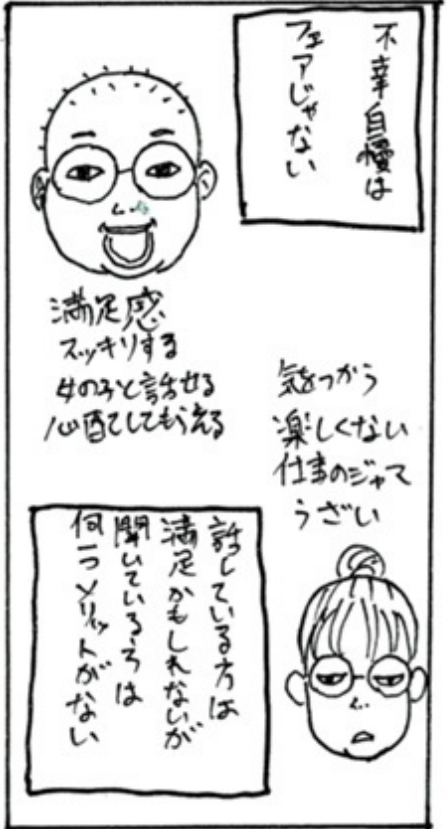 不幸自慢は
フェアじゃない
満足感
スッキリする
女の子と話せる
心配してもらえる
気をつかう
楽しくない
仕事のジャマ
うざい
話している方は
満足かもしれないが
聞いているほうは
何一つメリットがない